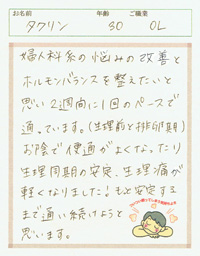 お名前 年齢 ご職業
タクリン 30 OL
婦人科系の悩みの改善と
ホルモンバランスを整えたいと
思い2週間に1回のペースで
通っています。(生理前と排卵期)
お陰で便通がよくなったり
生理周期の安定、生理痛が
軽くなりました!もと安定する
まで通い続けようと
思います。